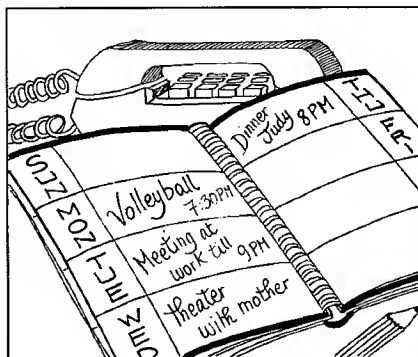 SUN
MON
Volleyball
7:30PM
TUE
Meeting at
work till
9PM
WED
theater
with mother
THU
Dinner
Judy 8PM
FRI